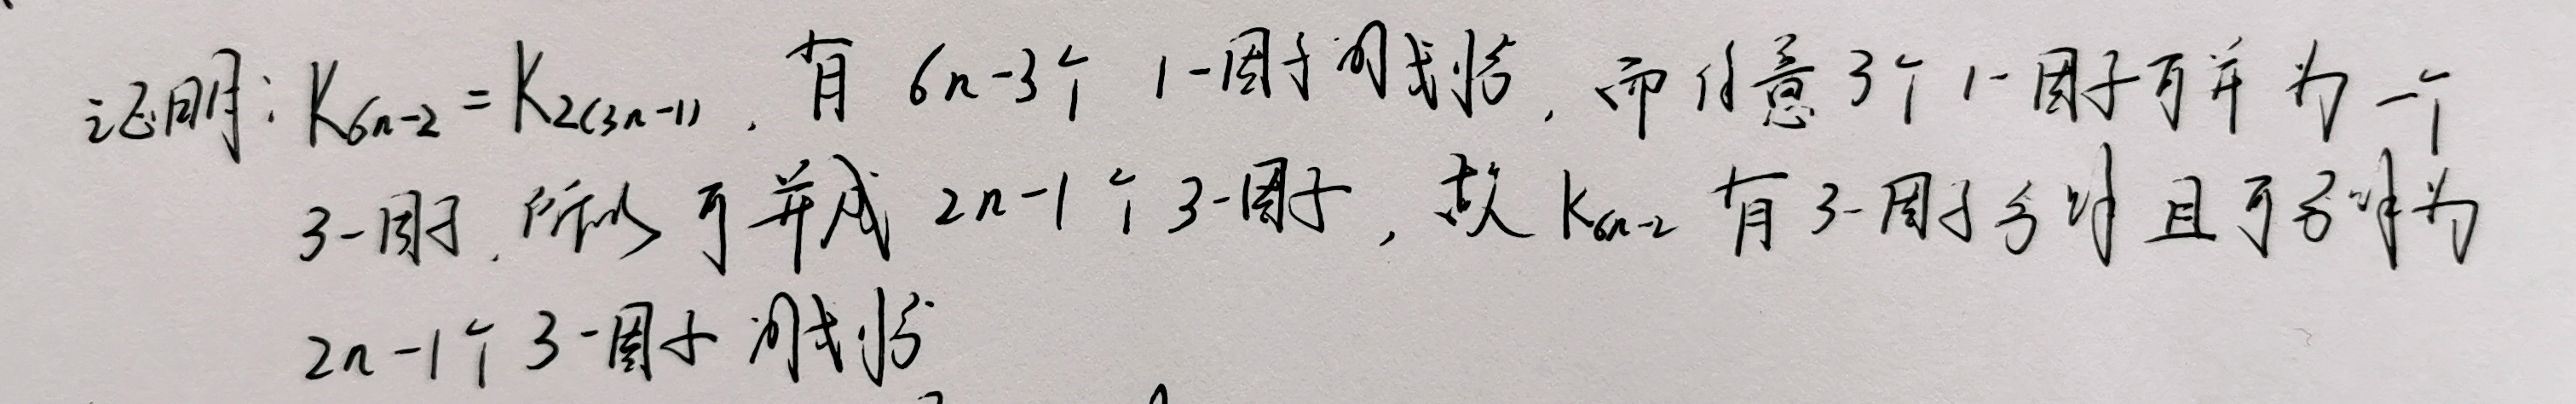 证明: K₆ₙ₋₂ = K₂₍₃ₙ₋₁₎, 有 6n-3个 1-因子的划分, 而任意3个1-因子可并为一个
3-因子, 所以可并成 2n-1个3-因子, 故 K₆ₙ₋₂ 有3-因子分解且可分解为
2n-1个3-因子的划分